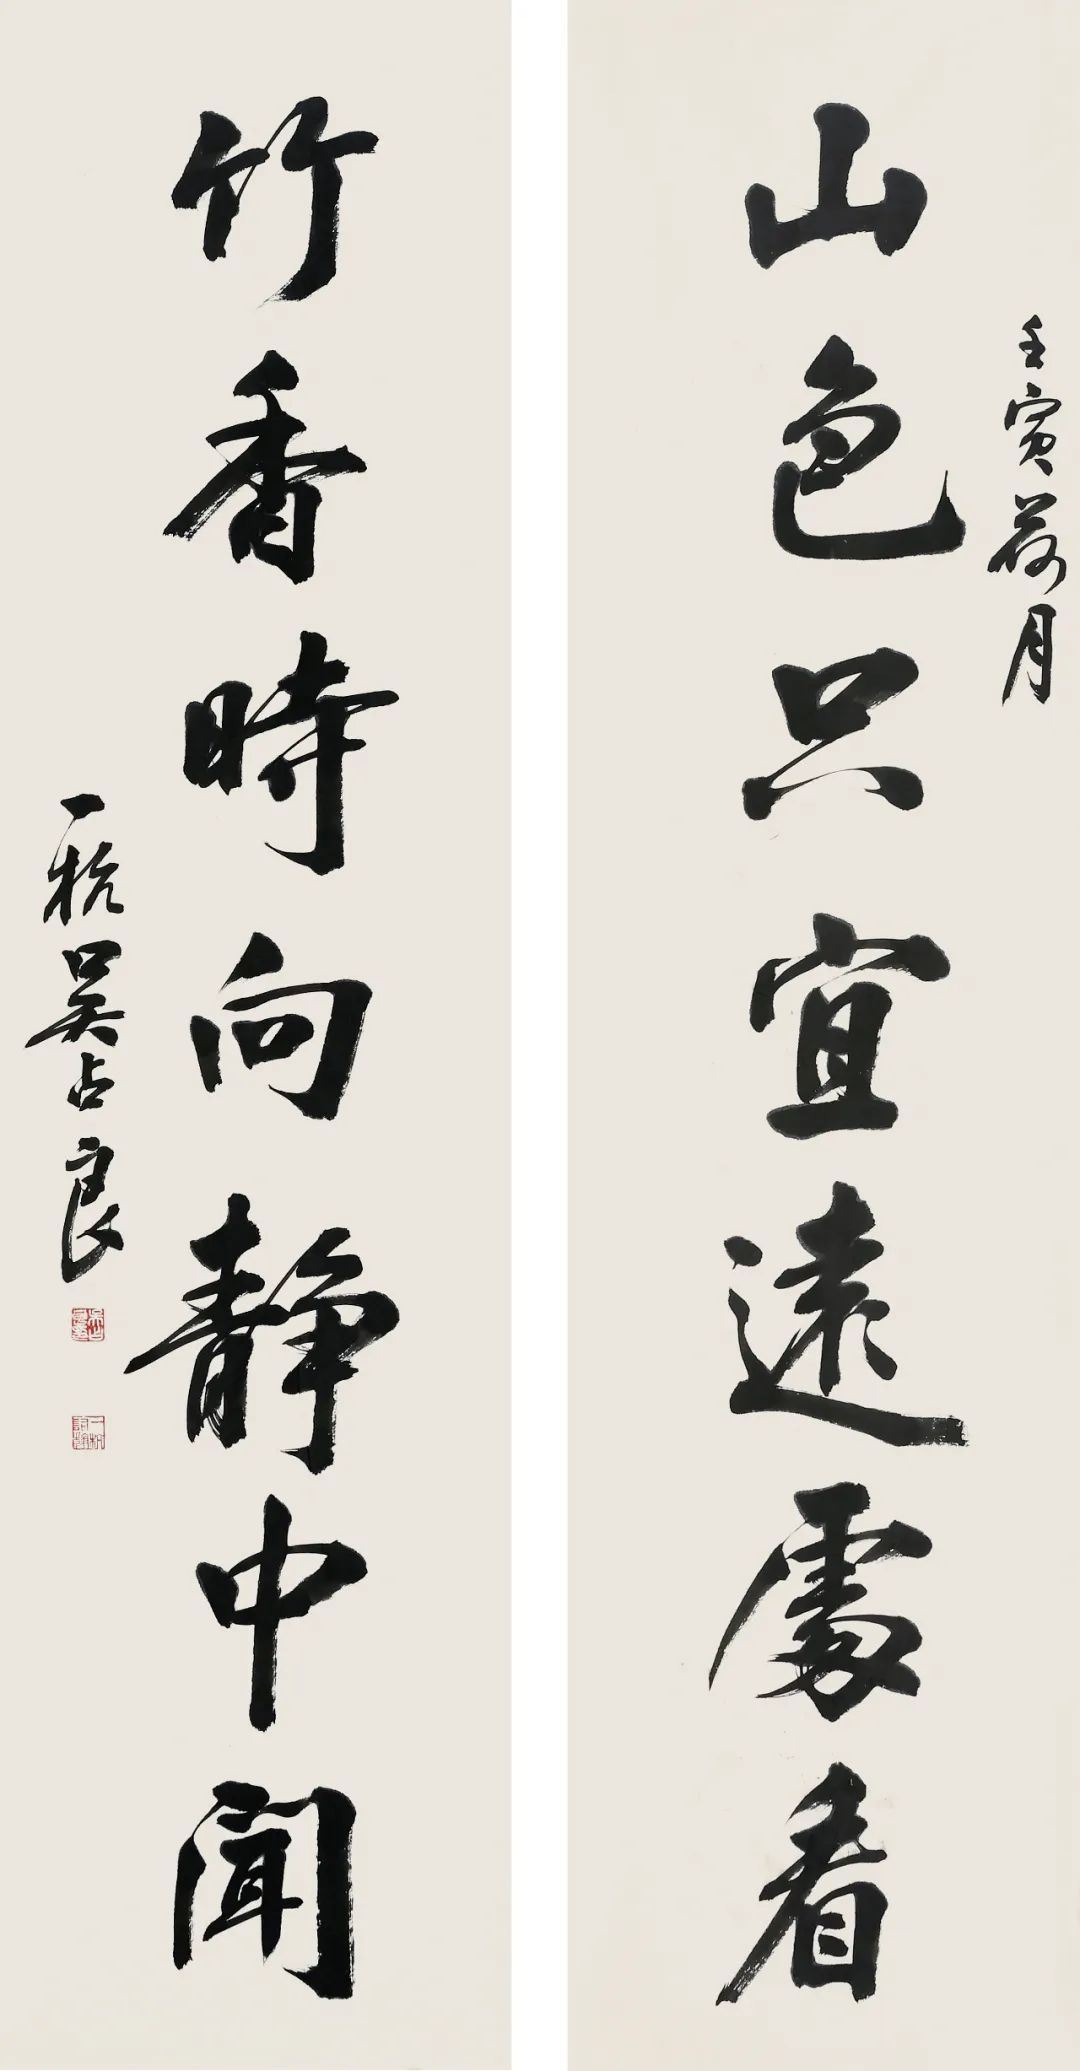 壬寅荷月
山色只宜遠處看
竹香時向靜中聞
一杭吴占良